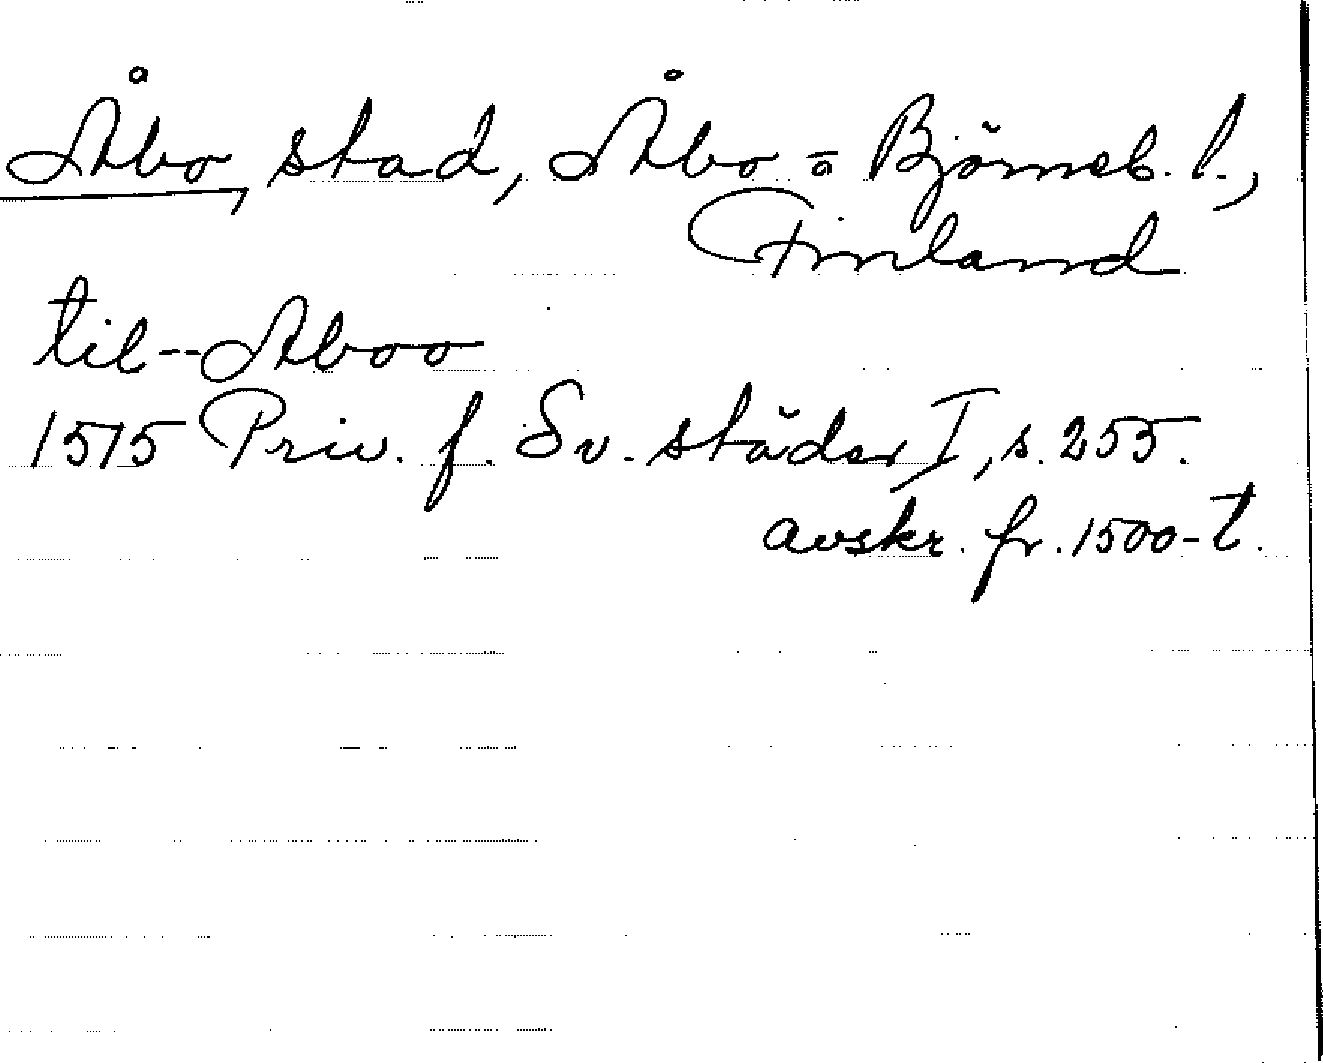 Åbo, stad, Åbo = Björneb. l.,
Finland
til -- Aboo
1515 Priv. f. Sv. städer I, s. 255.
avskr. fr. 1500-t.